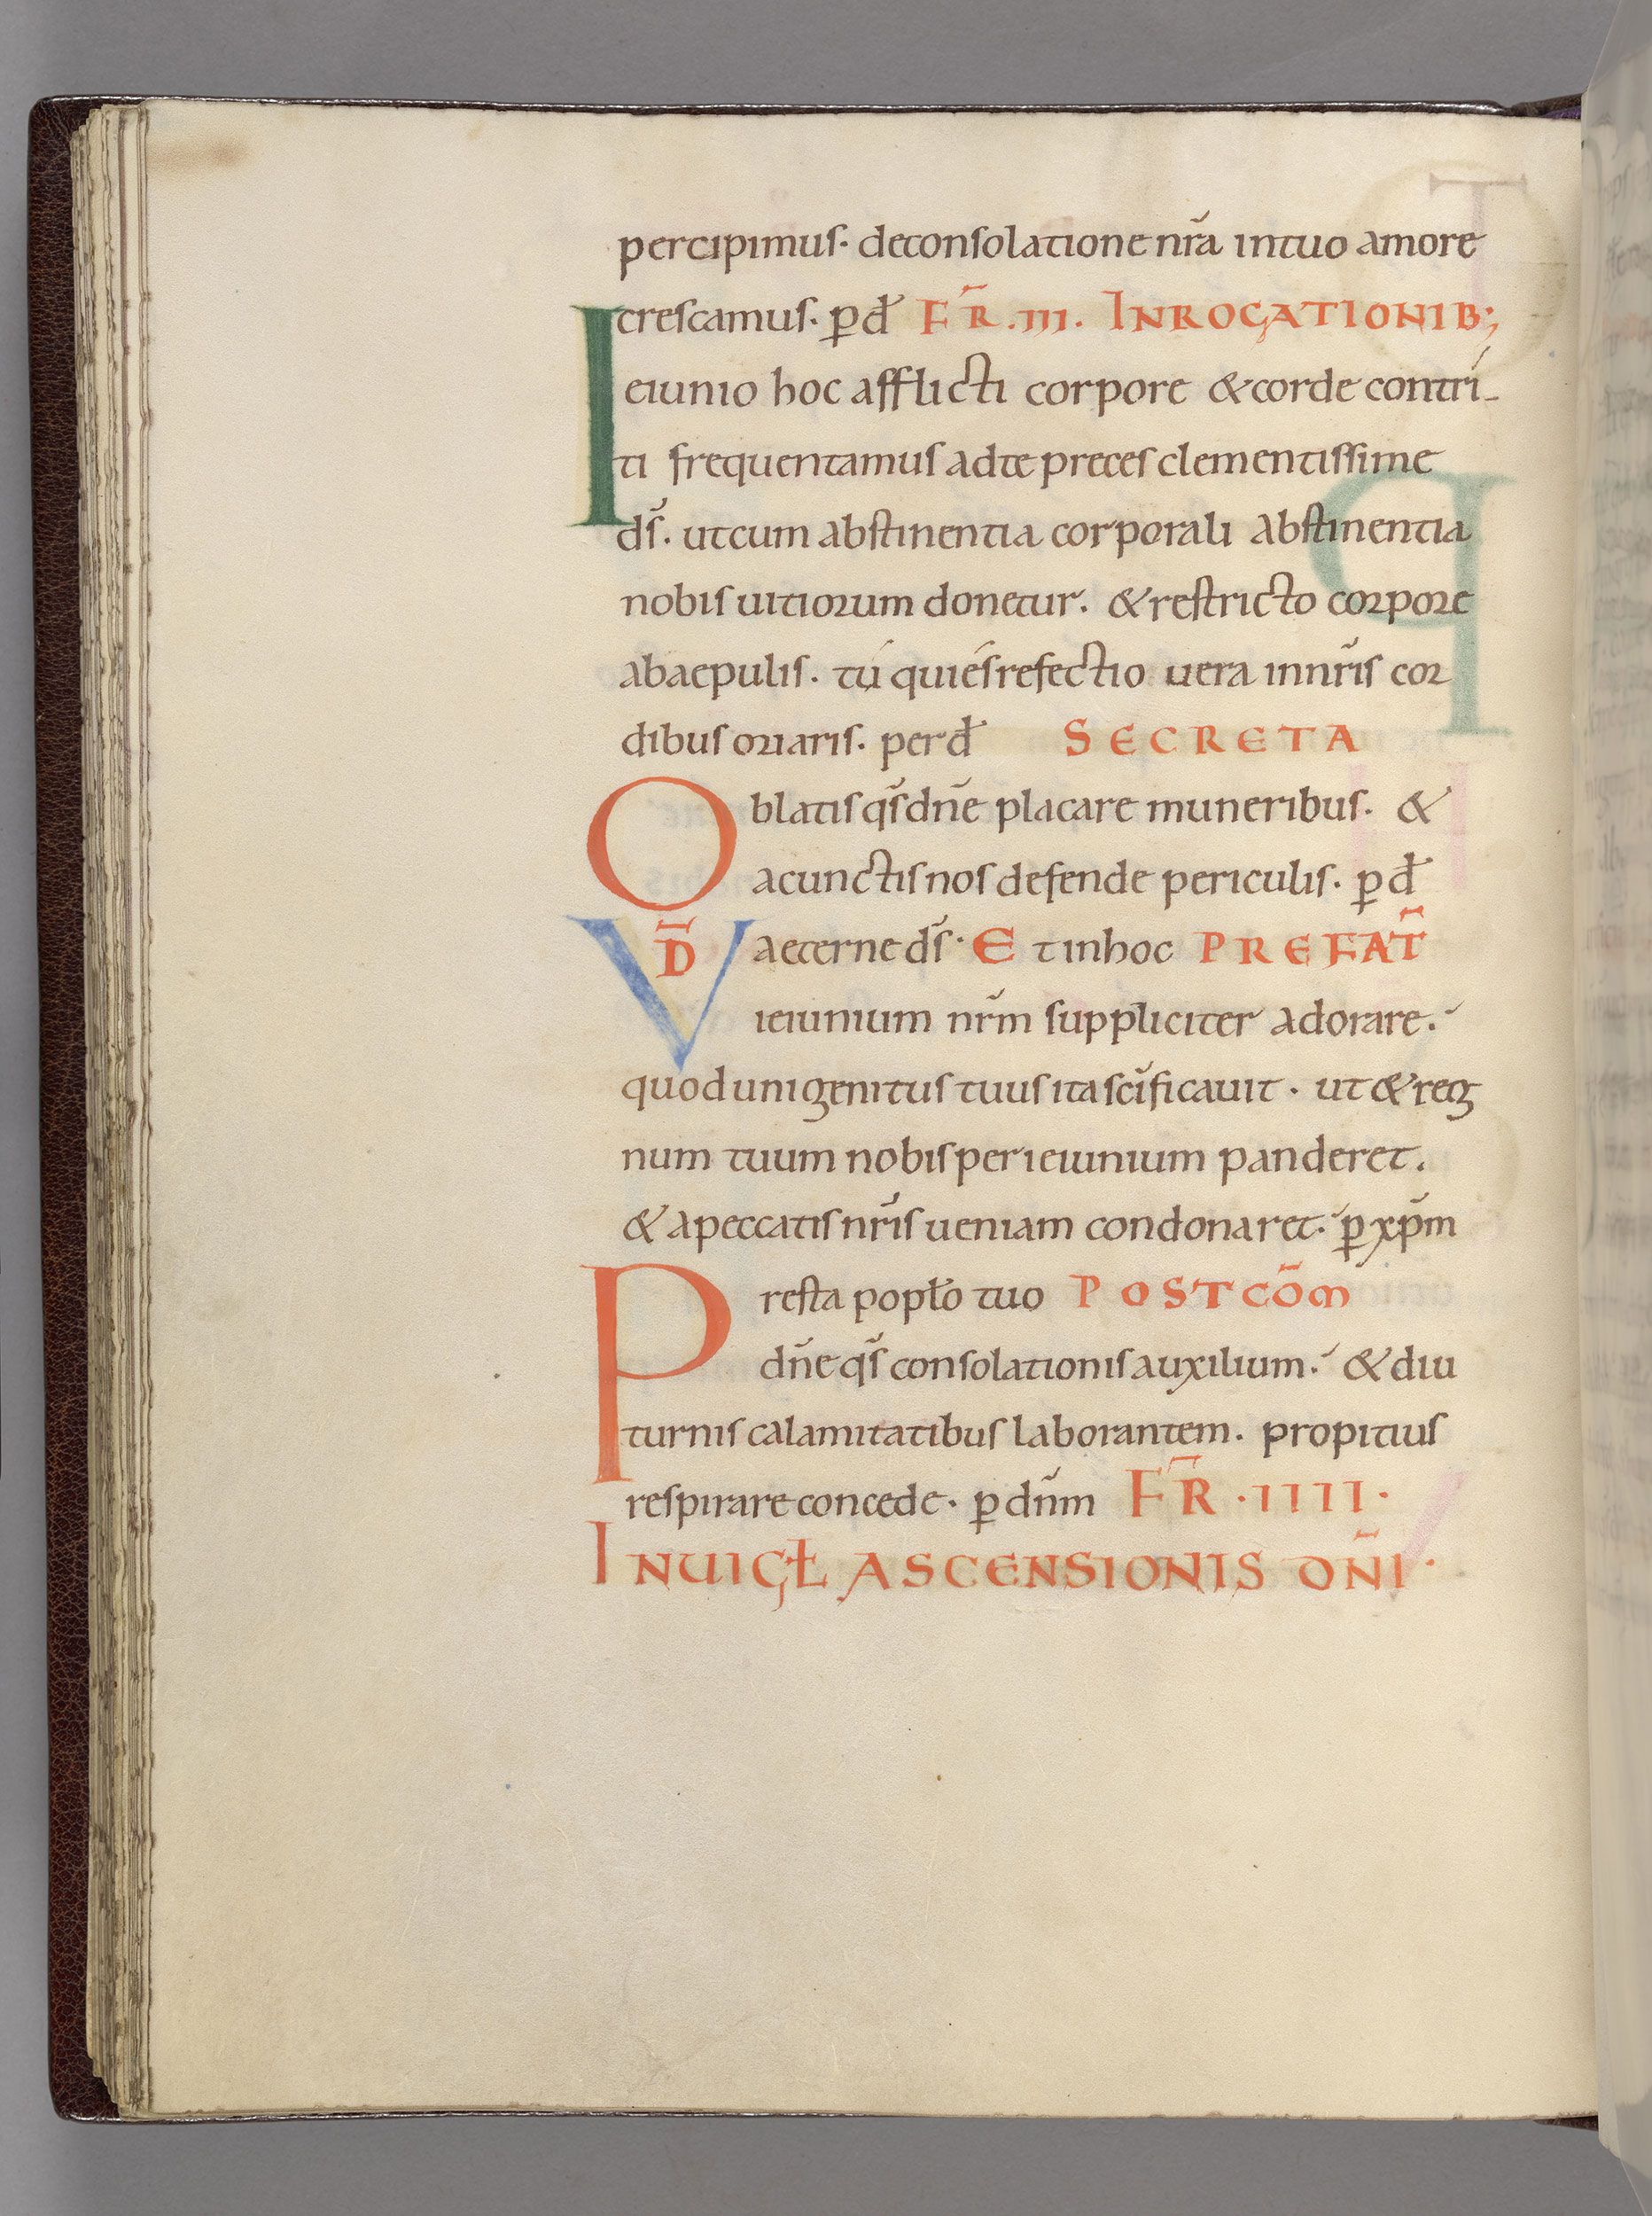 percipimus. deconsolatione nr̃a intuo amore
crescamus. ꝑ đ FR̃ .III. INROGATIONIB;
Ieiunio hoc afflicti corpore & corde contri-
ti frequentamus adte preces clementissime
ds̃. utcum abstinentia corporali abstinentia
nobis uitiorum donetur. & restricto corpore
abaepulis. tú quiés refectio uera innr̃is cor
dibus oriaris. per đ SECRETA
Oblatis qs̃ dñe placare muneribus. &
acunctis nos defende periculis. ꝑ đ
VD̃ aeterne ds̃. Et inhoc PREFAT̃
ieiunium nr̃m suppliciter adorare.
quod unigenitus tuus ita sc̃ificauit. ut & reg
num tuum nobis per ieiunium panderet.
& apeccatis nr̃is ueniam condonaret. ꝑ xp̃m
Presta popło tuo POSTCÕM
dñe qs̃ consolationis auxilium. & diu
turnis calamitatibus laborantem. propitius
respirare concede. ꝑ dñm FR̃ .IIII.
INUIGŁ ASCENSIONIS DÑI.